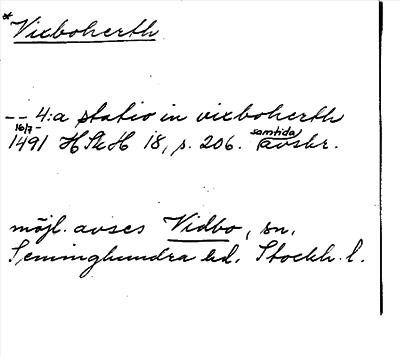 *Vixboherth
-- 4:a statio in vixboherth
16/7 -
1491 HSkH 18, s. 206. samtida avskr.
möjl. avses Vidbo, sn,
Seminghundra hd, Stockh. l.